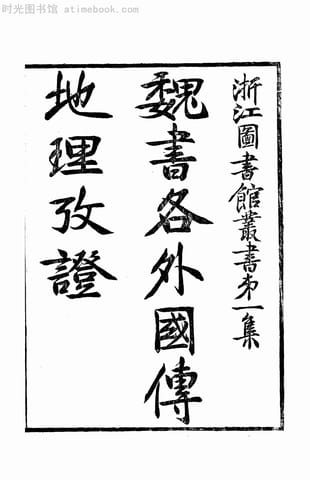 时光图书馆 atimebook.com
浙江圖書館叢書弟一集
魏書各外國傳
地理攷證